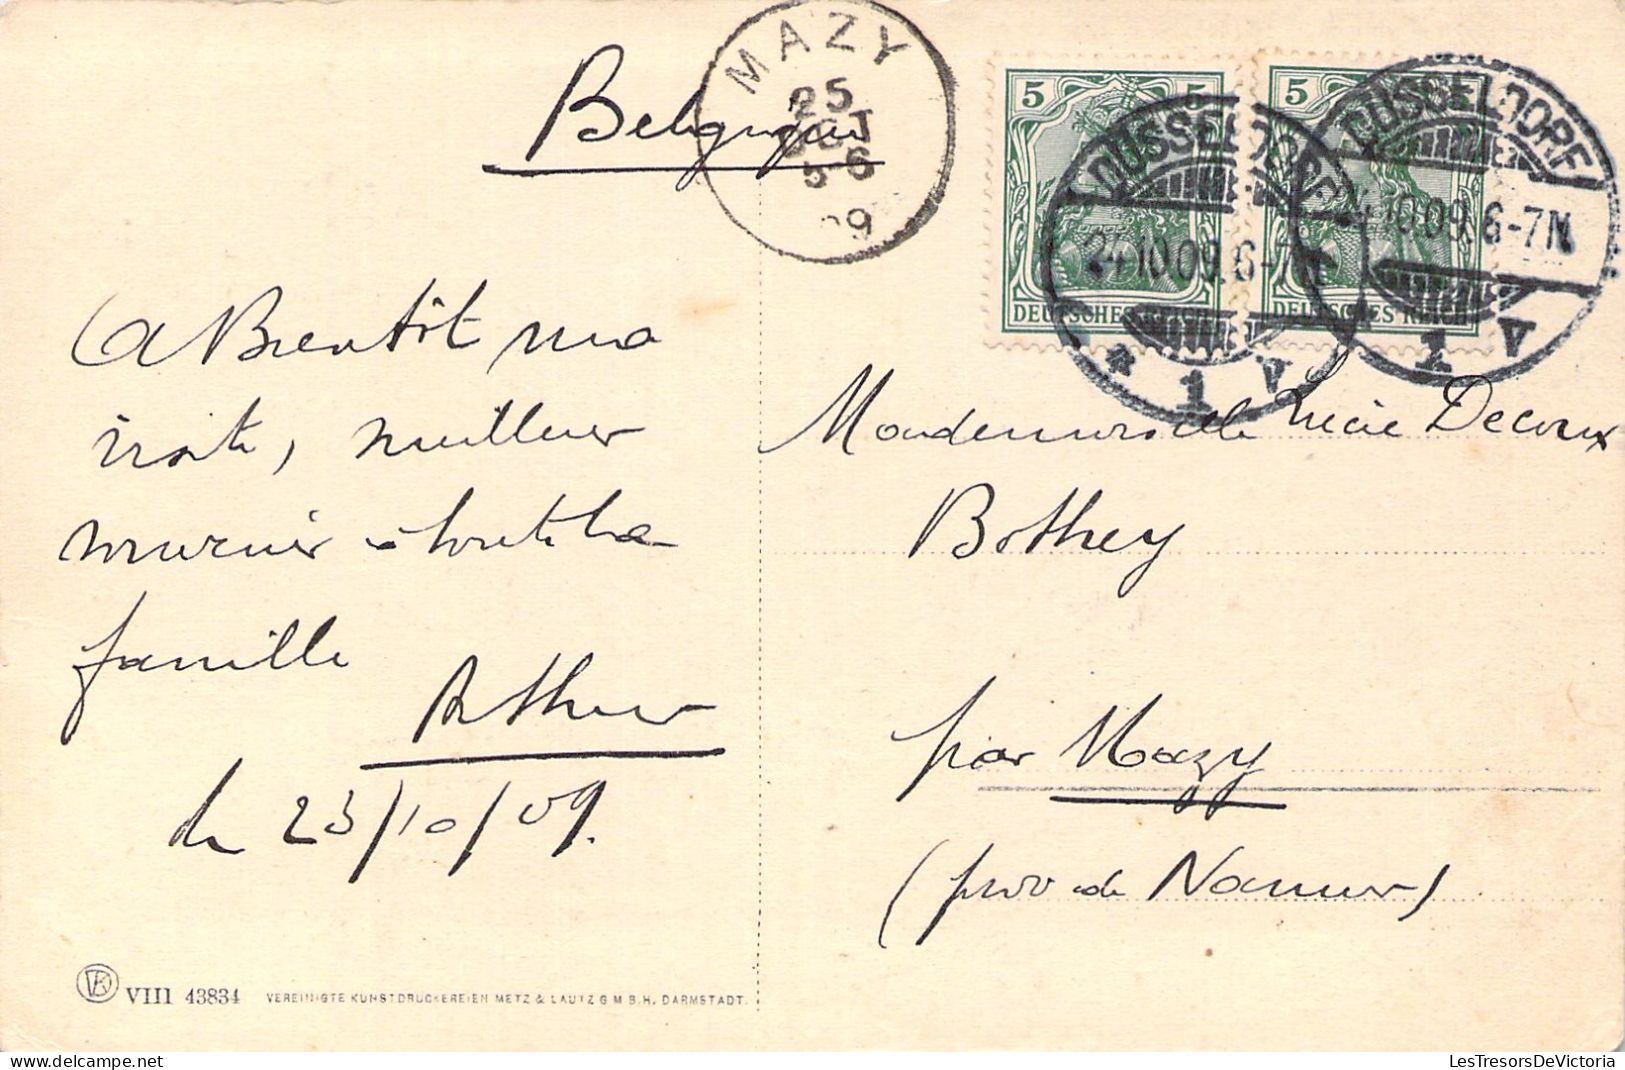 Belgique
MAZY
25
OCT
5-6
09
5 5
DEUTSCHES REICH
DÜSSELDORF
24.10.09. 6-7N
* 1 V
5
DEUTSCHES REICH
DÜSSELDORF
24.10.09. 6-7N
1 V
A Bientôt ma
meilleur
souvenir à toute la
famille
Arthur
le 23/10/09.
Mademoiselle Lucie Decoux
Bothey
par Mazy
(prov de Namur)
VK VIII 43834 VEREINIGTE KUNSTDRUCKEREIEN METZ & LAUTZ G M B.H. DARMSTADT.
LesTresorsDeVictoria